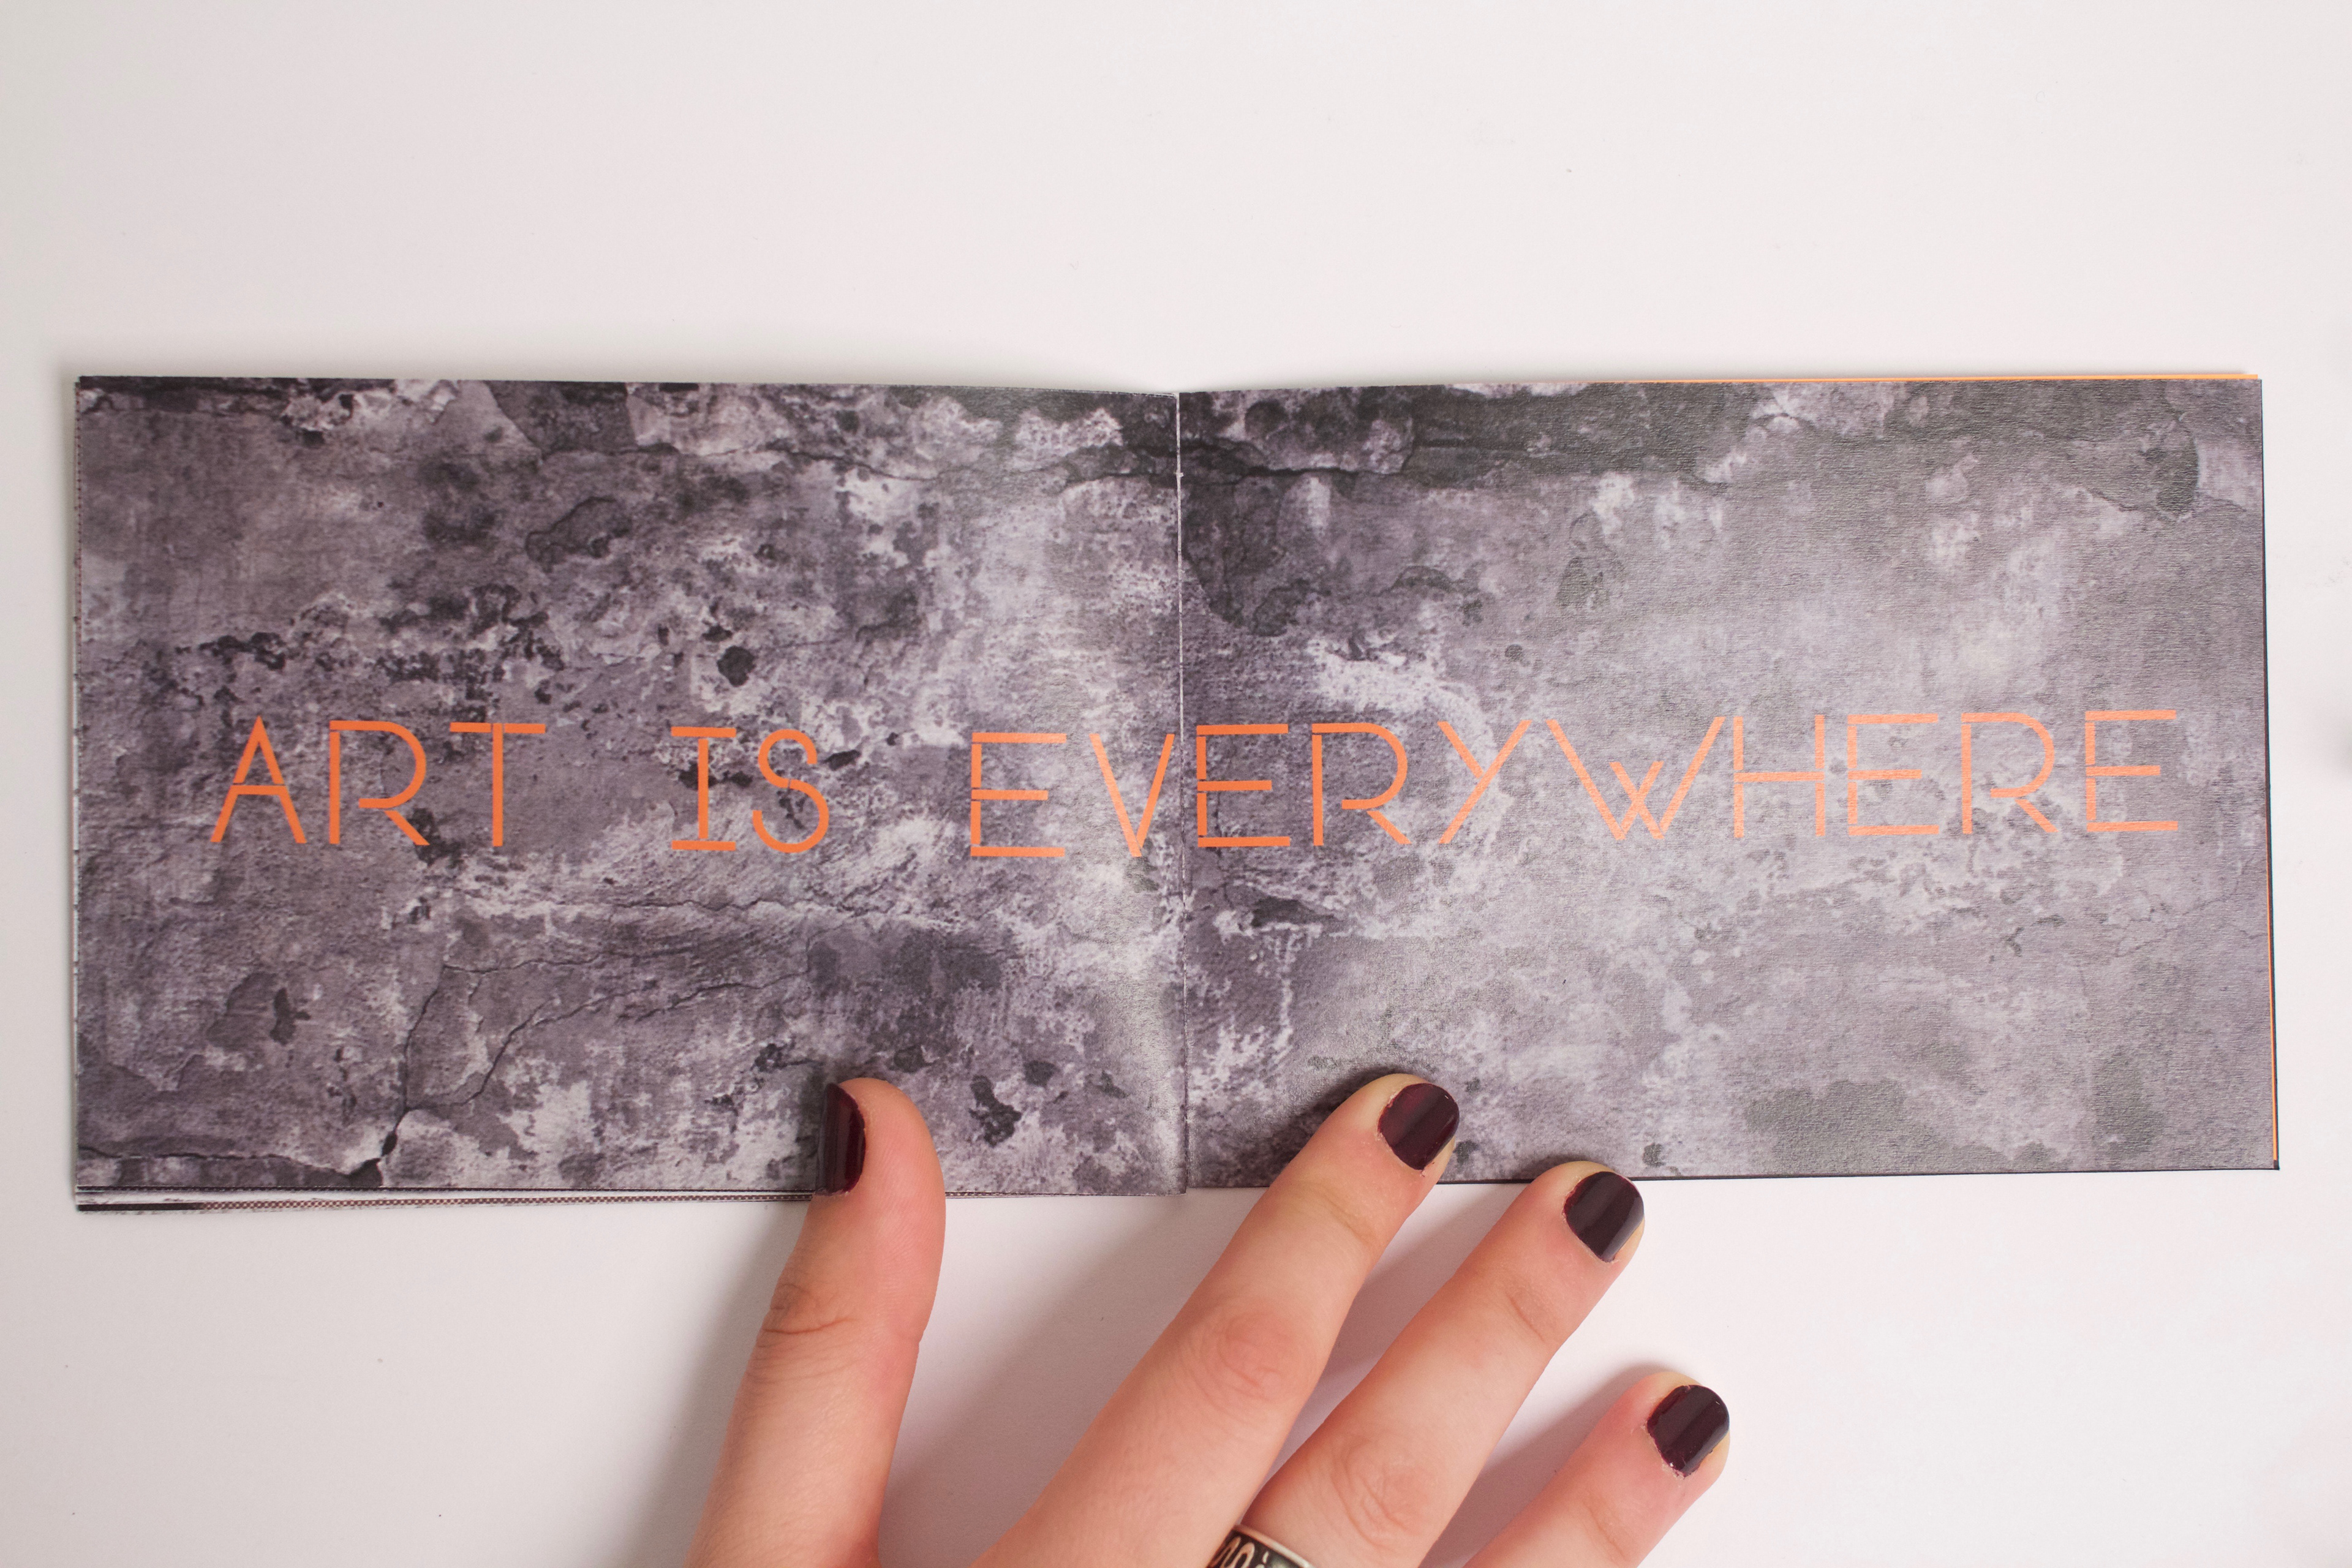 ART IS EVERYWHERE